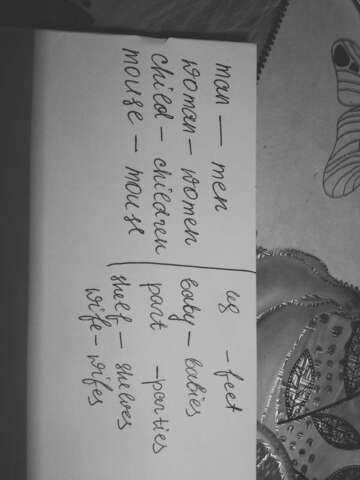 man — men
woman – women
child – children
mouse – mouse
– feet
baby – babies
part – parties
shelf – shelves
wife – wifes